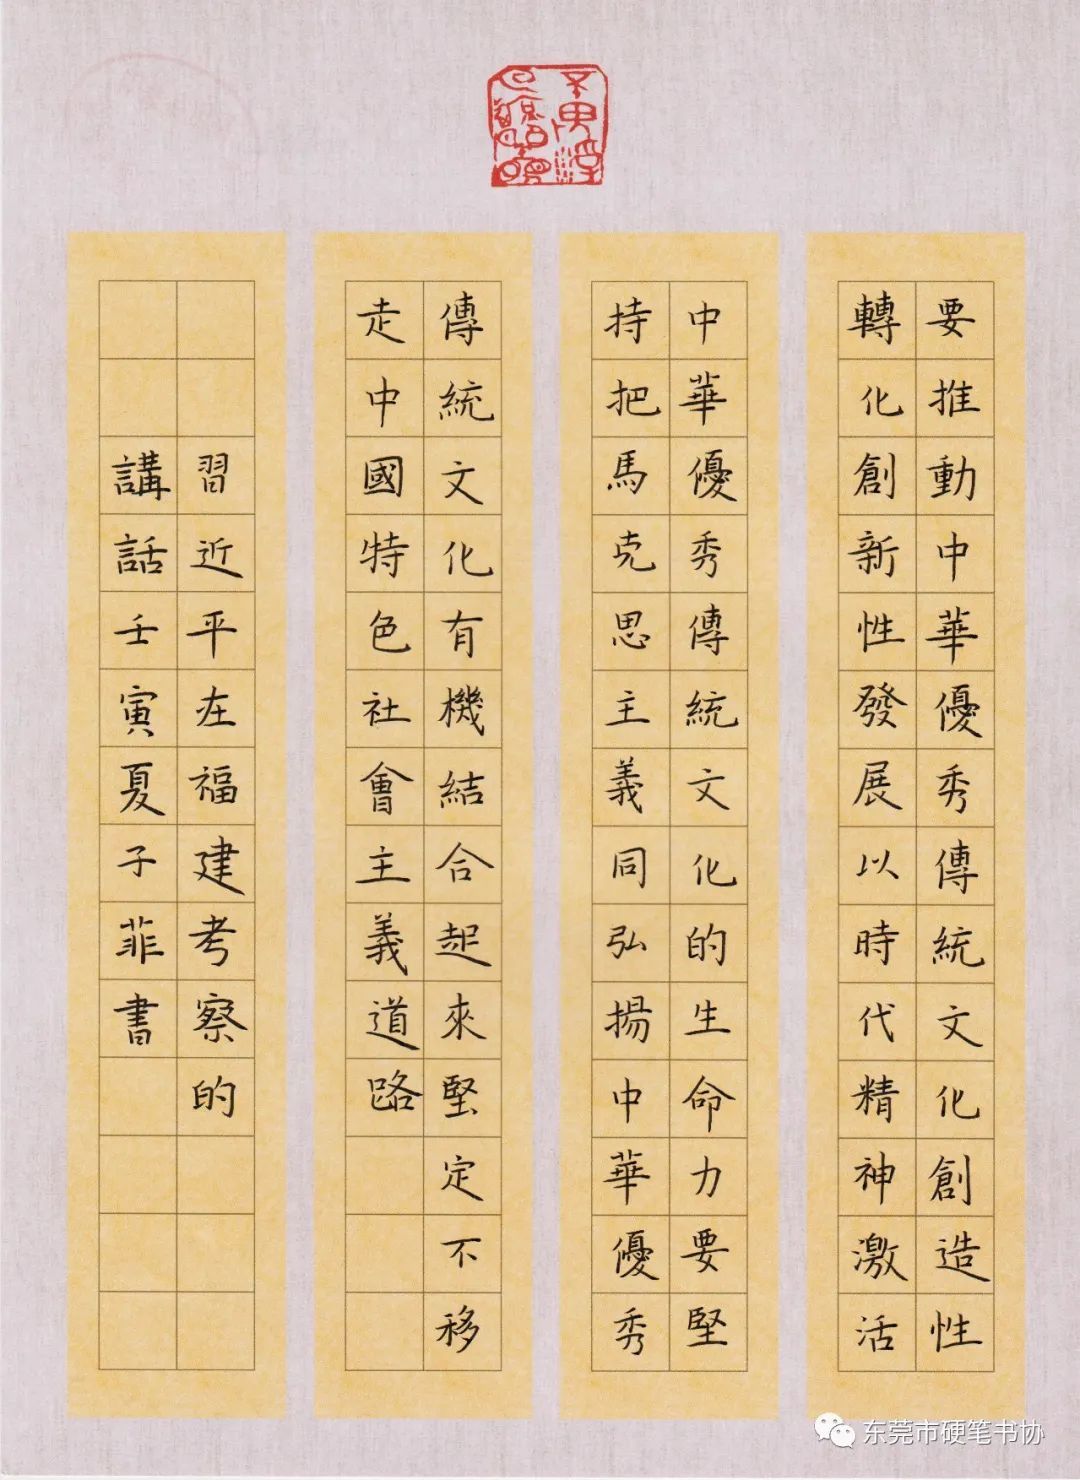 要推動中華優秀傳統文化創造性
轉化創新性發展以時代精神激活
中華優秀傳統文化的生命力要堅
持把馬克思主義同弘揚中華優秀
傳統文化有機結合起來堅定不移
走中國特色社會主義道路
習近平在福建考察的
講話壬寅夏子菲書
东莞市硬笔书协